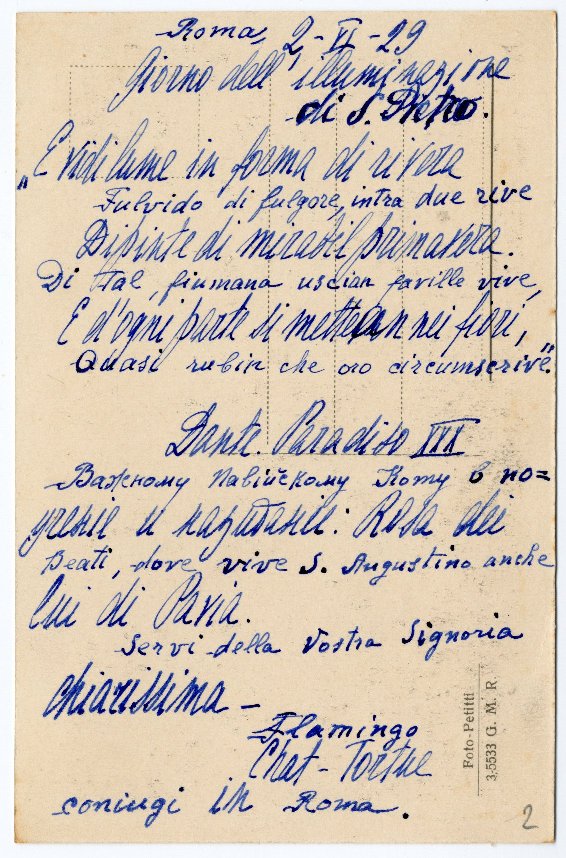 Roma, 2-VI-29
Giorno dell'illuminazione
di S. Pietro.
"E vidi lume in forma di rivera
Fulvido di fulgore, intra due rive
Dipinte di mirabil primavera.
Di tal, fiumana uscian faville vive,
E d'ogni parte si mettean nei fiori,
Quasi rubin che oro circumscrive."
Dante. Paradiso XXX
Важному Павийскому Кому в по=
учение и назидание: Rosa dei
Beati, dove vive S. Augustino anche
lui di Pavia.
Servi della Vostra Signoria
chiarissima —
Flamingo
Chat-Tortue
coniugi in Roma.
Foto-Petitti
3.5533 G. M. R.
2